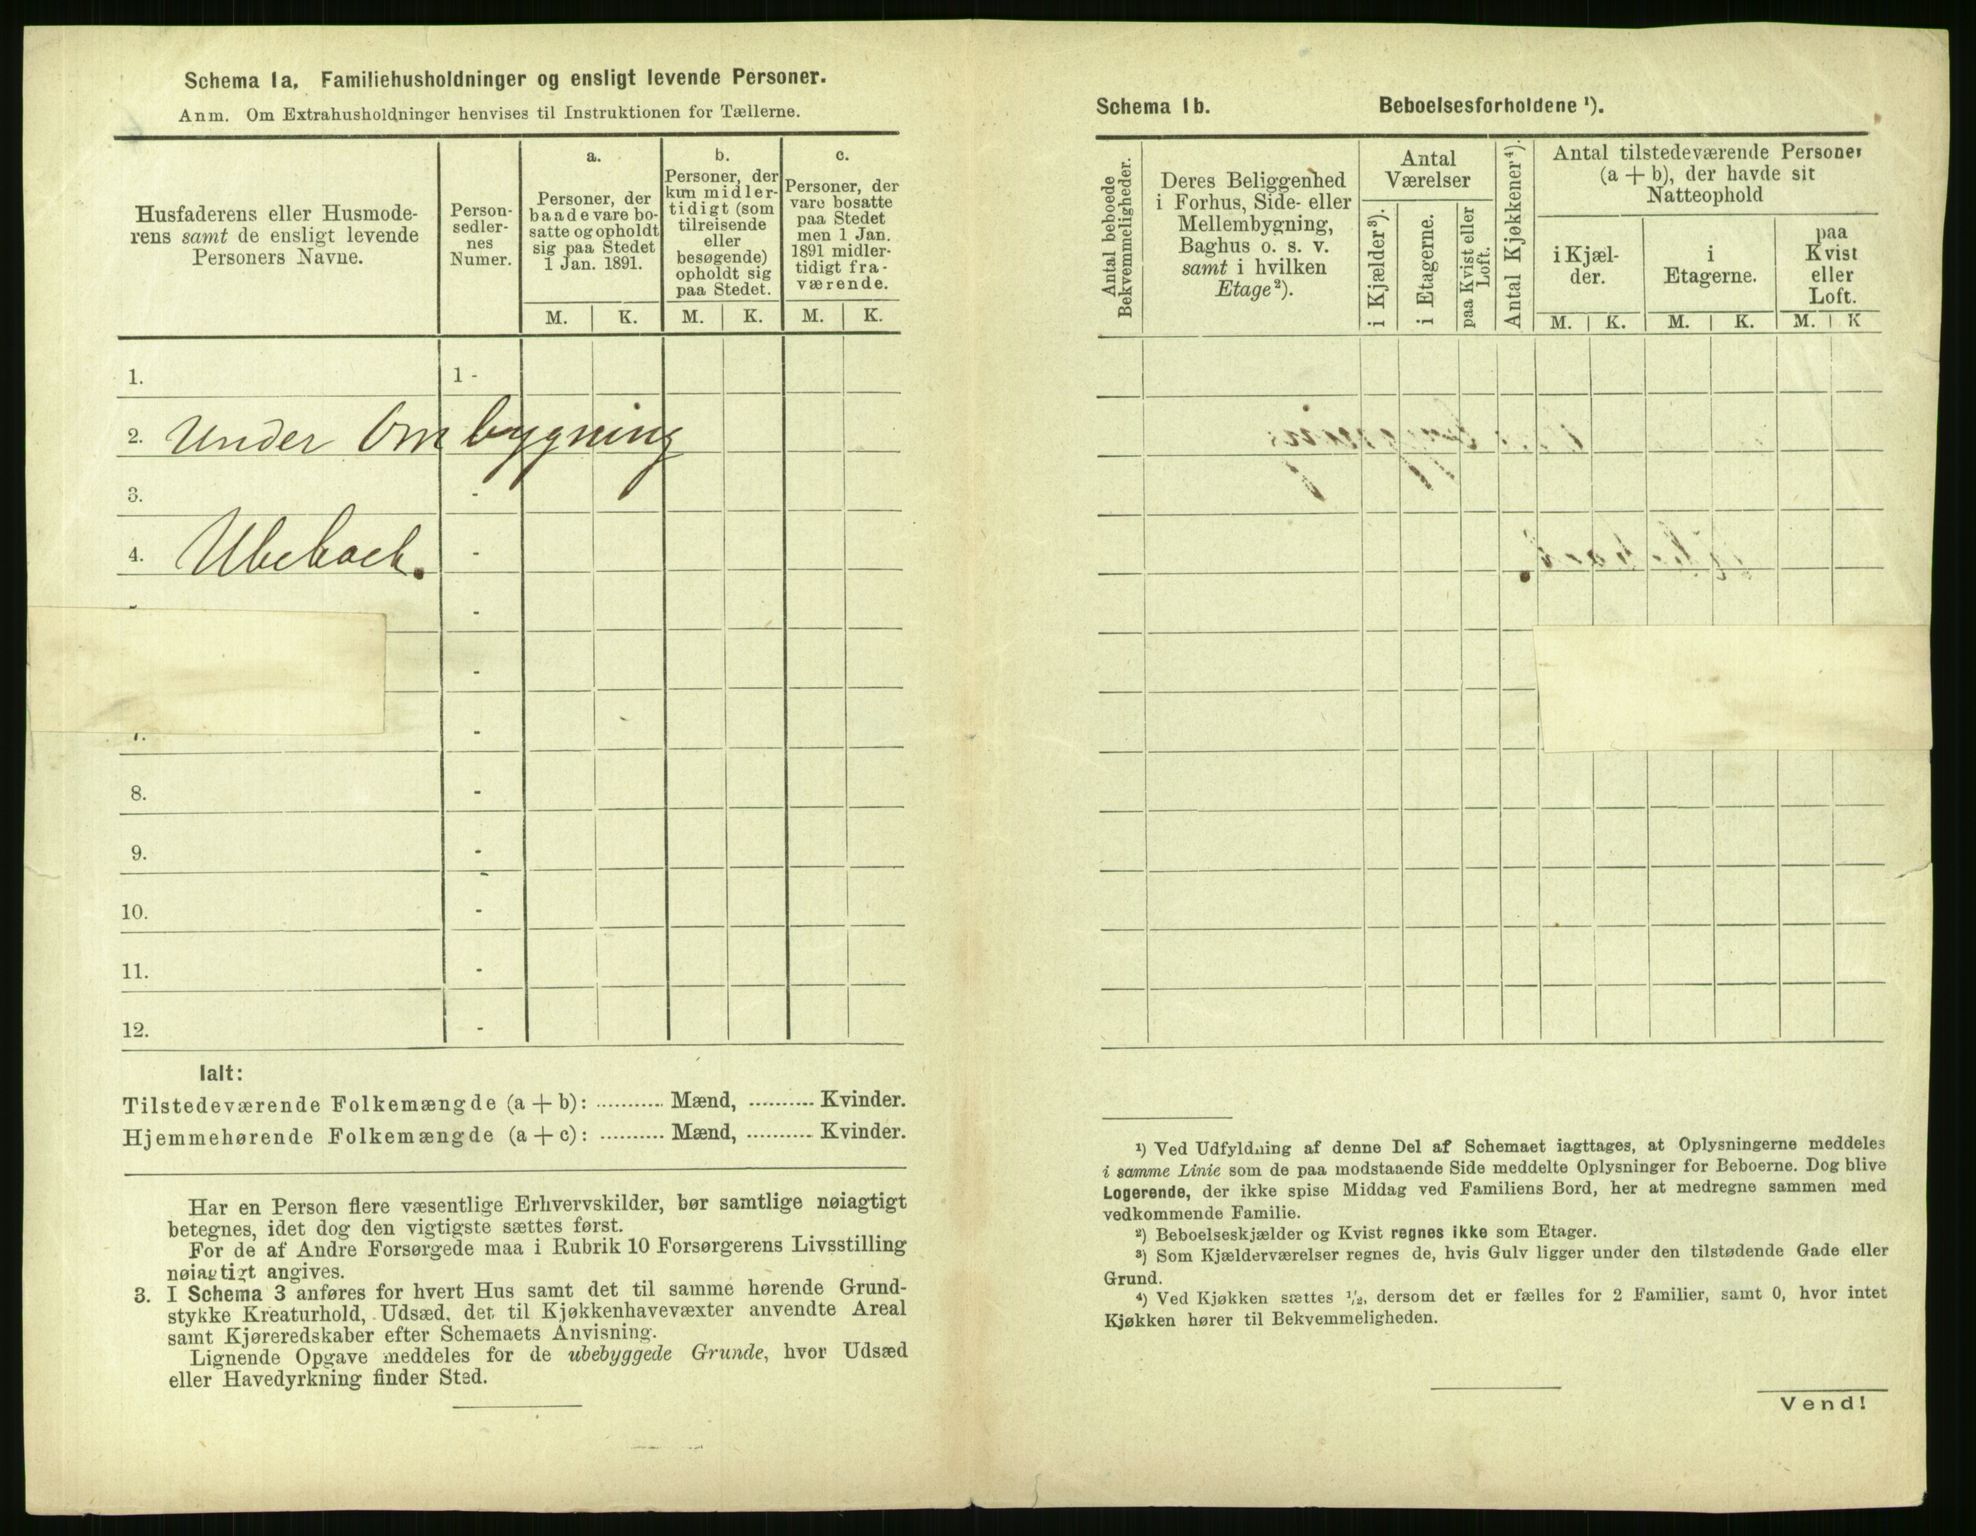 Schema 1a. Familiehusholdninger og ensligt levende Personer.
Anm. Om Extrahusholdninger henvises til Instruktionen for Tællerne.
Husfaderens eller Husmode-
rens samt de ensligt levende
Personers Navne.
Person-
sedler-
nes
Numer.
a.
Personer, der
baade vare bo-
satte og opholdt
sig paa Stedet
1 Jan. 1891.
b.
Personer, der
kun midler-
tidigt (som
tilreisende
eller
besøgende)
opholdt sig
paa Stedet.
c.
Personer, der
vare bosatte
paa Stedet
men 1 Jan.
1891 midler-
tidigt fra-
værende.
M. K. M. K. M. K.
1. 1 -
2. Under Ombygning
3. -
4. Ubeboet. -
-
-
7. -
8. -
9. -
10. -
11. -
12. -
Ialt:
Tilstedeværende Folkemængde (a + b): .......... Mænd, .......... Kvinder.
Hjemmehørende Folkemængde (a + c): .......... Mænd, .......... Kvinder.
Har en Person flere væsentlige Erhvervskilder, bør samtlige nøiagtigt
betegnes, idet dog den vigtigste sættes først.
For de af Andre Forsørgede maa i Rubrik 10 Forsørgerens Livsstilling
nøiagtigt angives.
3. I Schema 3 anføres for hvert Hus samt det til samme hørende Grund-
stykke Kreaturhold, Udsæd, det til Kjøkkenhavevæxter anvendte Areal
samt Kjøreredskaber efter Schemaets Anvisning.
Lignende Opgave meddeles for de ubebyggede Grunde, hvor Udsæd
eller Havedyrkning finder Sted.
Schema 1b. Beboelsesforholdene ¹).
Antal beboede
Bekvemmeligheder.
Deres Beliggenhed
i Forhus, Side- eller
Mellembygning,
Baghus o. s. v.
samt i hvilken
Etage ²).
Antal
Værelser
i Kjælder ³).
i Etagerne.
paa Kvist eller
Loft.
Antal Kjøkkener ⁴).
Antal tilstedeværende Personer
(a + b), der havde sit
Natteophold
i Kjæl-
der.
i
Etagerne.
paa
Kvist
eller
Loft.
M. K. M. K. M. K
¹) Ved Udfyldning af denne Del af Schemaet iagttages, at Oplysningerne meddeles
i samme Linie som de paa modstaaende Side meddelte Oplysninger for Beboerne. Dog blive
Logerende, der ikke spise Middag ved Familiens Bord, her at medregne sammen med
vedkommende Familie.
²) Beboelseskjælder og Kvist regnes ikke som Etager.
³) Som Kjælderværelser regnes de, hvis Gulv ligger under den tilstødende Gade eller
Grund.
⁴) Ved Kjøkken sættes ½, dersom det er fælles for 2 Familier, samt 0, hvor intet
Kjøkken hører til Bekvemmeligheden.
Vend!